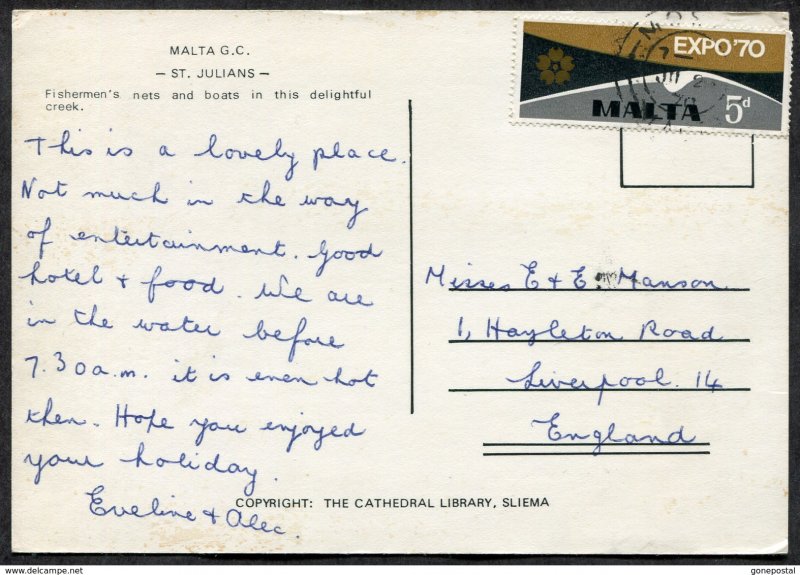 MALTA G.C.
— ST. JULIANS —
Fishermen's nets and boats in this delightful
creek.
This is a lovely place.
Not much in the way
of entertainment. Good
hotel + food. We are
in the water before
7.30a.m. it is even hot
then. Hope you enjoyed
your holiday.
Eveline + Alec.
EXPO'70
MALTA 5d
Misses E + E. Manson.
1, Hayleton Road
Liverpool. 14
England
COPYRIGHT: THE CATHEDRAL LIBRARY, SLIEMA
hipstamp.com
gonepostal